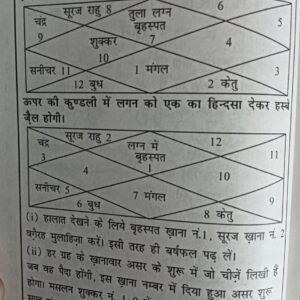 सूरज राहु 8 तुला लग्न 6
चंद्र बृहस्पत 5
9 शुक्कर 7 4
10
सनीचर 11 1 मंगल 3
12 बुध 2 केतु
ऊपर की कुण्डली में लगन को एक का हिन्दसा देकर हस्बे
ज़ैल होगी।
सूरज राहु 2 लग्न में 12
चंद्र बृहस्पत 11
3 4 1 10
सनीचर 5 7 मंगल 9
6 बुध 8 केतु
(i) हालात देखने के लिये बृहस्पत ख़ाना नं.1, सूरज ख़ाना नं. 2
वग़ैरह मुलाहिज़ा करें। इसी तरह ही बर्षफल पढ़ लें।
(ii) हर ग्रह के ख़ानावार असर के शुरू में जो चीज़ें लिखी हैं
जब वह पैदा होंगी, इस ख़ाना नम्बर में दिया हुआ असर शुरू
होगा। मसलन शुक्कर नं.